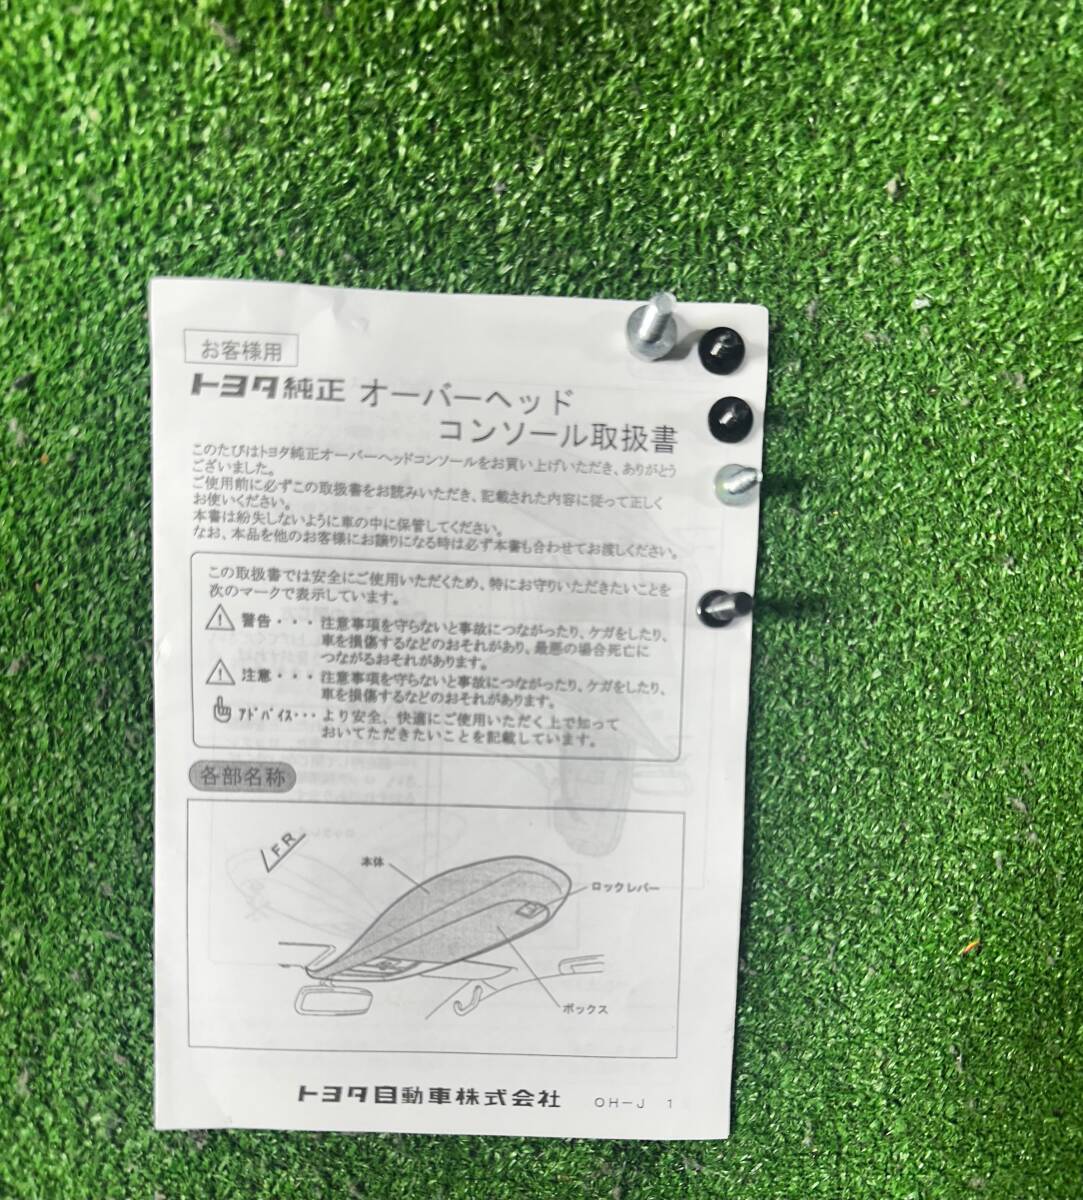 お客様用
トヨタ純正 オーバーヘッド
コンソール取扱書
このたびはトヨタ純正オーバーヘッドコンソールをお買い上げいただき、ありがとう
ございました。
ご使用前に必ずこの取扱書をお読みいただき、記載された内容に従って正しく
お使いください。
本書は紛失しないように車の中に保管してください。
なお、本品を他のお客様にお譲りになる時は必ず本書も合わせてお渡しください。
この取扱書では安全にご使用いただくため、特にお守りいただきたいことを
次のマークで表示しています。
警告・・・注意事項を守らないと事故につながったり、ケガをしたり、
車を損傷するなどのおそれがあり、最悪の場合死亡に
つながるおそれがあります。
注意・・・注意事項を守らないと事故につながったり、ケガをしたり、
車を損傷するなどのおそれがあります。
アドバイス・・・より安全、快適にご使用いただく上で知って
おいてただきたいことを記載しています。
各部名称
FR
本体
ロックレバー
ボックス
トヨタ自動車株式会社 OH-J 1